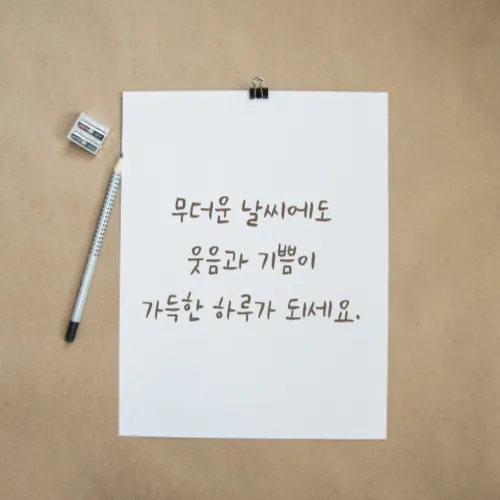 무더운 날씨에도
웃음과 기쁨이
가득한 하루가 되세요.